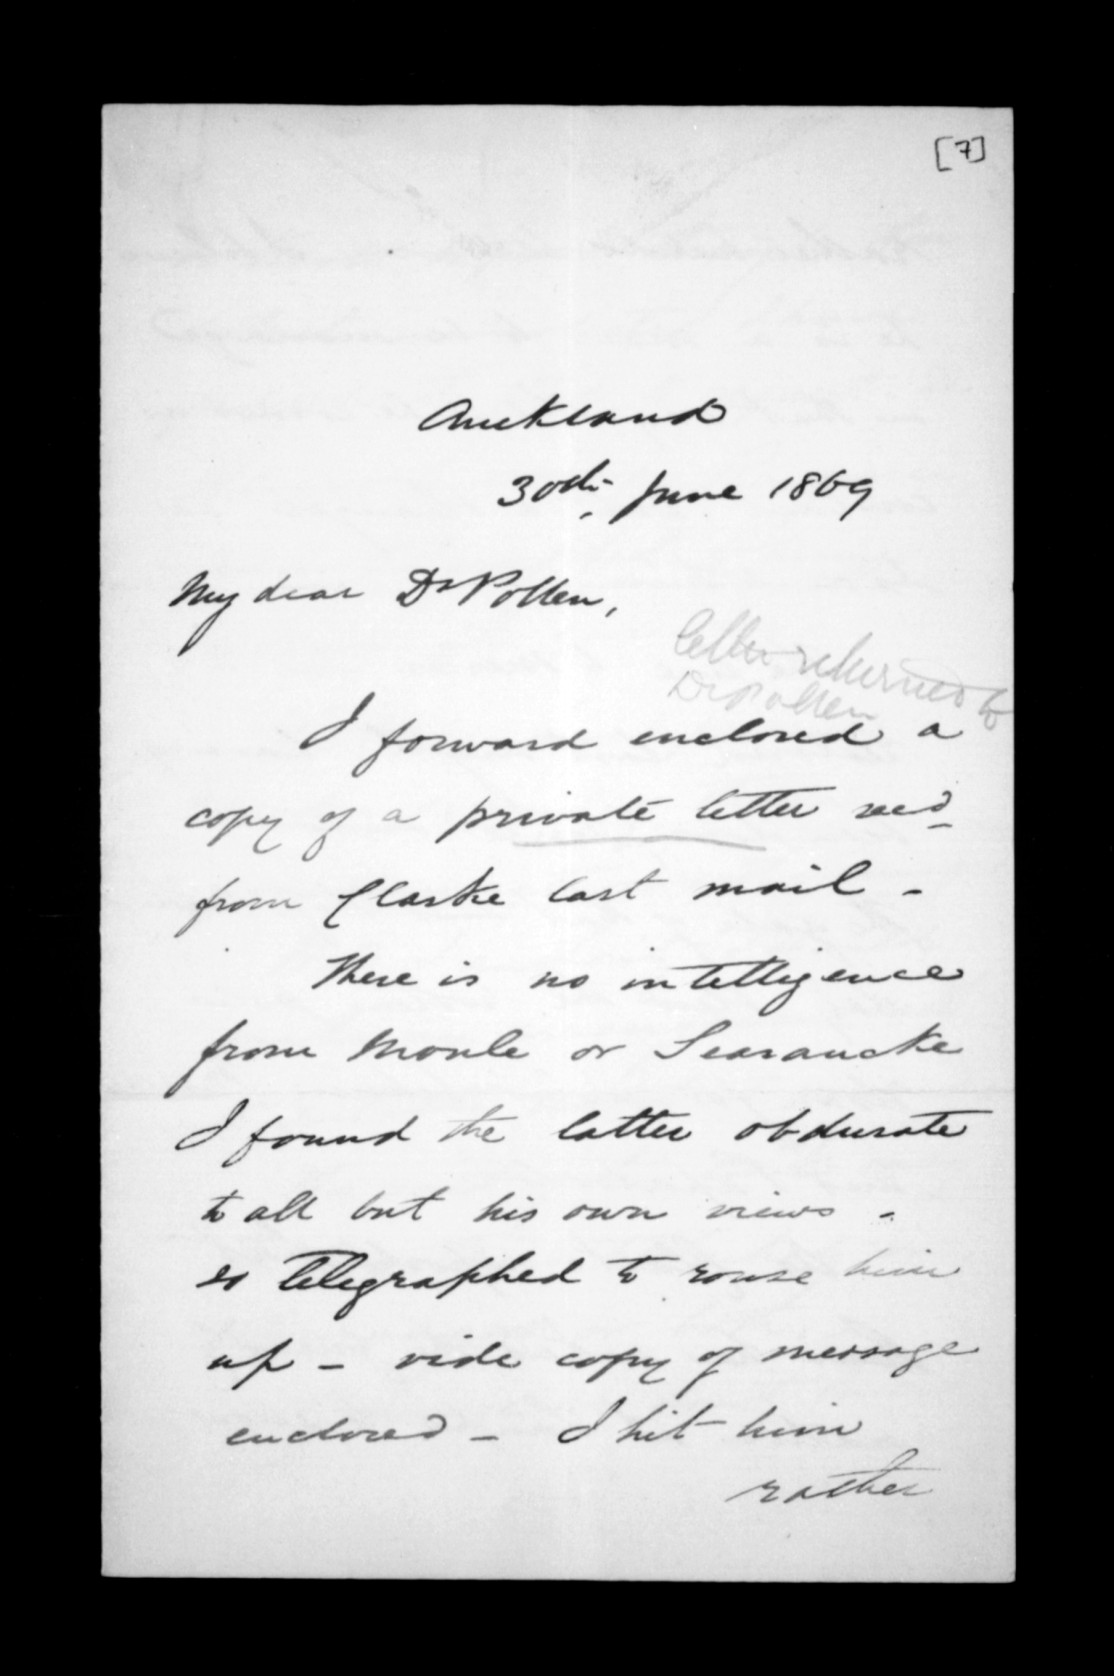 [7]
Auckland
30th June 1869
My dear Dr Pollen,
letter returned to
Dr Pollen
I forward enclosed a
copy of a private letter recd
from Clarke last mail -
There is no intelligence
from Moule or Searancke
I found the latter obdurate
to all but his own views -
so Telegraphed to rouse him
up - vide copy of message
enclosed - I hit him
rather